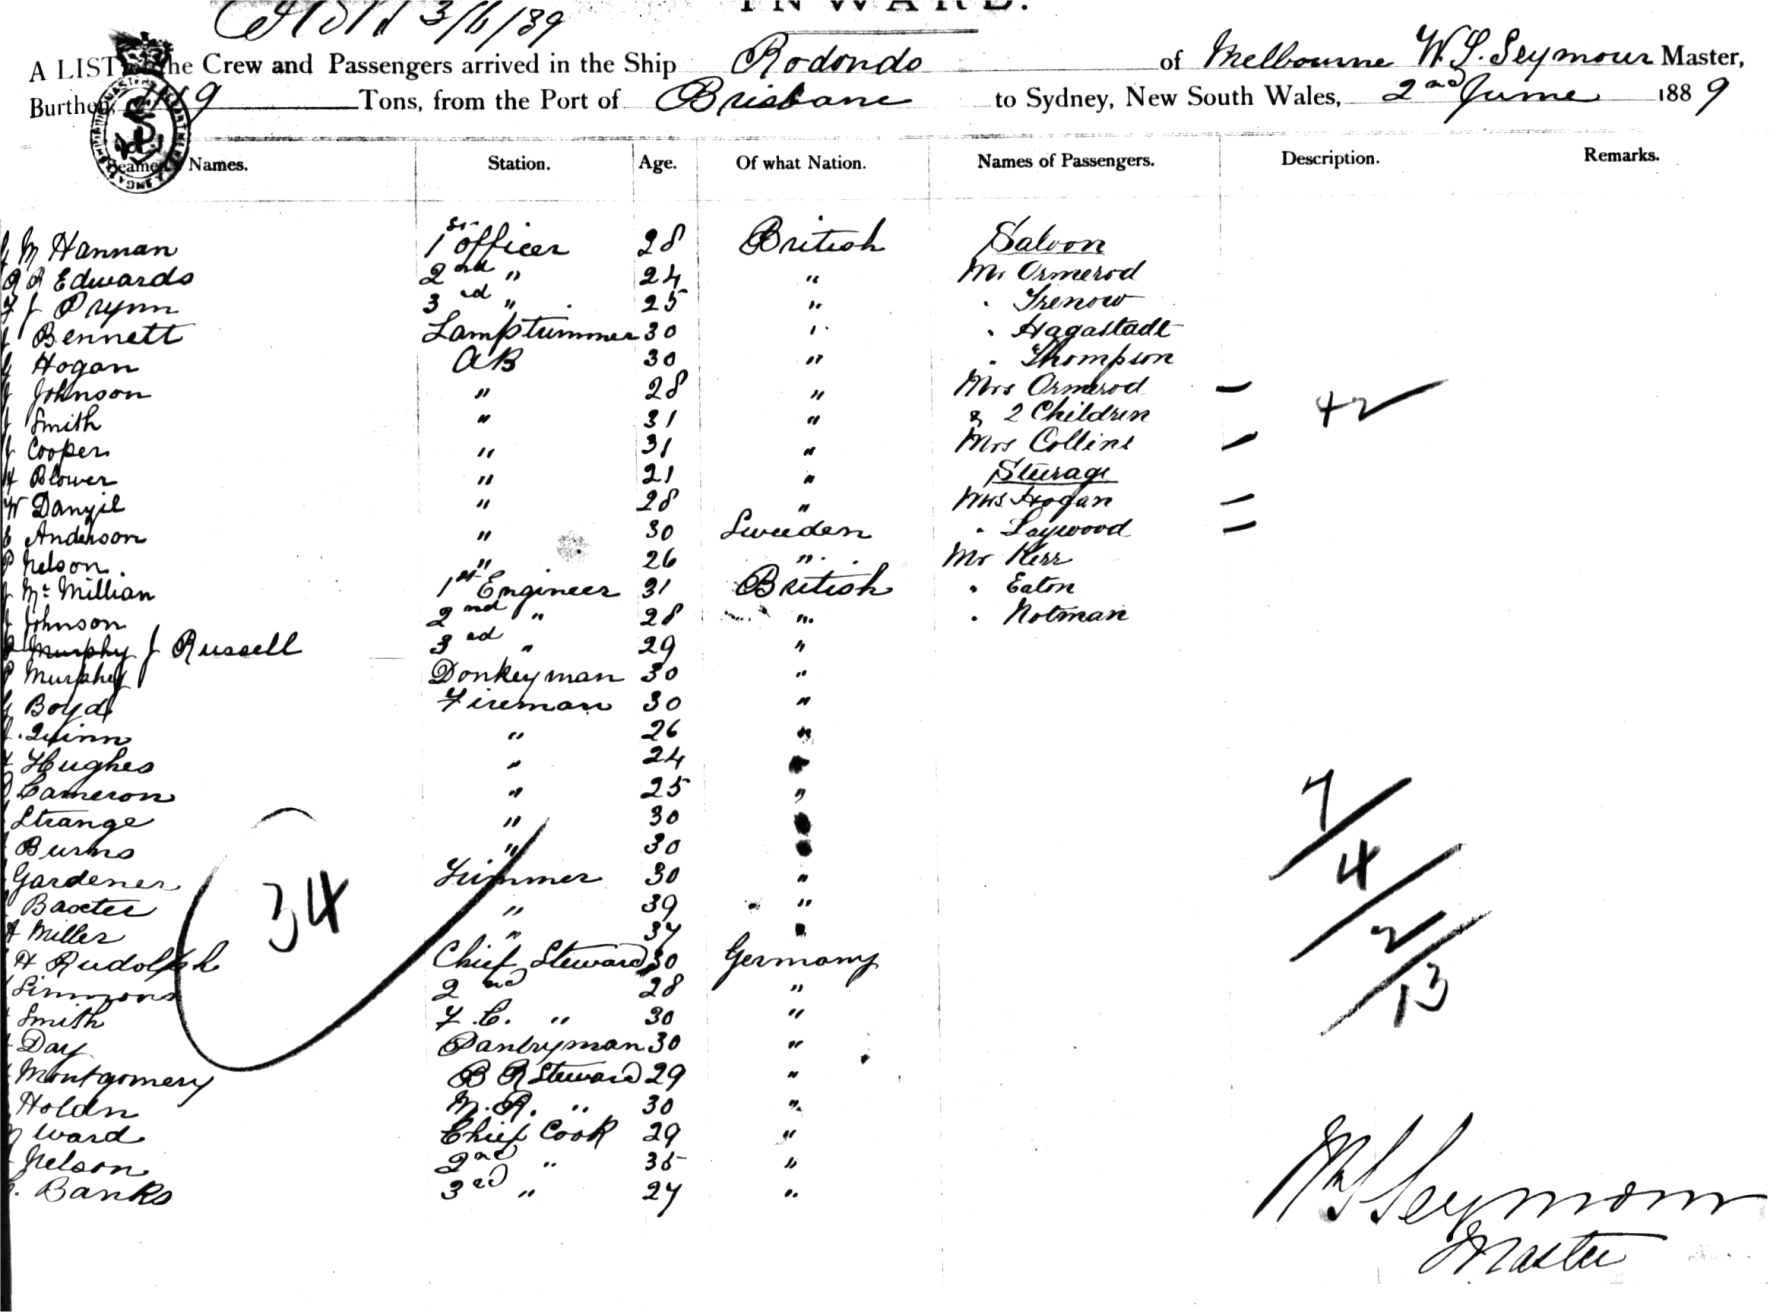 3/6/89
INWARD.
A LIST of the Crew and Passengers arrived in the Ship Rodondo of Melbourne W. S. Seymour Master,
Burthen, 1119 Tons, from the Port of Brisbane to Sydney, New South Wales, 2nd June 1889
Seamen's Names. Station. Age. Of what Nation. Names of Passengers. Description. Remarks.
M Hannan 1st officer 28 British Saloon
Edwards 2nd " 24 " Mr Ormerod
J Prynn 3rd " 25 " " Trenow
Bennett Lamptrimmer 30 " " Hagastadt
Hogan AB 30 " " Thompson
Johnson " 28 " Mrs Ormerod —
Smith " 31 " & 2 Children 42
Cooper " 31 " Mrs Collins —
H Blower " 21 " Steerage
W Danzil " 28 " Mrs Hogan —
Anderson " 30 Sweeden " Laywood —
P Nelson. " 26 " Mr Kerr
J McMillian 1st Engineer 31 British " Eaton
J Johnson 2nd " 28 " " Notman
Murphy J Russell 3rd " 29 "
P Murphy Donkeyman 30 "
Boyd Fireman 30 "
Quinn " 26 "
Hughes " 24 "
Cameron " 25 " 7
Strange " 30 "
Burns " 30 " 4
Gardener Trimmer 30 "
34
Baxter " 39 " 2
Miller " 37 "
H Rudolph Chief Steward 30 Germany
Simmons 2nd 28 " 13
Smith F.C. " 30 "
Day Pantryman 30 "
Montgomery B R Steward 29 "
Holdn M.R. " 30 "
Ward Chief Cook 29 "
Nelson 2nd " 35 "
Banks 3rd " 27 "
Seymour
Master